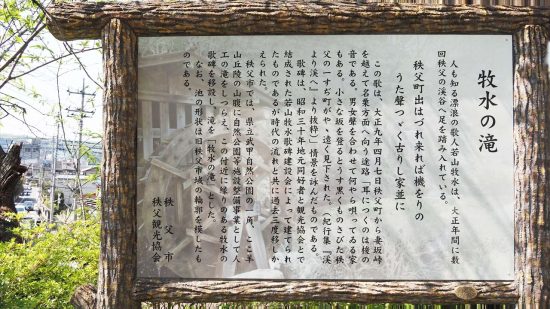 牧水の滝
人も知る漂浪の歌人若山牧水は、大正年間に数
回秩父の渓谷へ足を踏み入れている。
秩父町出はづれ来れば機をりの
うた聲つゞく古りし家並に
この歌は、大正九年四月七日秩父町から妻坂峠
を越えて名栗方面へ向う途路「耳につくのは梭の
音である。男女聲を合わせて何やら唄ってゐる家
もある。小さな坂を登るとうす黒くものさびた秩
父の一すぢ町がや、遠く見下された。(紀行集『渓
より渓へ』より抜粋)」情景を詠んだものである。
歌碑は、昭和三十年地元同好者と観光協会とで
結成された若山牧水歌碑建設会によって建てられ
たものであるが時代の流れと共に過去三度移しか
えられた。
秩父市では、県立武甲自然公園の一角、ここ羊
山丘陵の山腹に自然公園等施設整備事業として人
工の滝をしつらえ、この付近に縁りのある牧水の
歌碑を移設し、滝を「牧水の滝」とした。
なお、池の形状は旧秩父市域の輪郭を模したも
のである。
秩父市
秩父観光協会